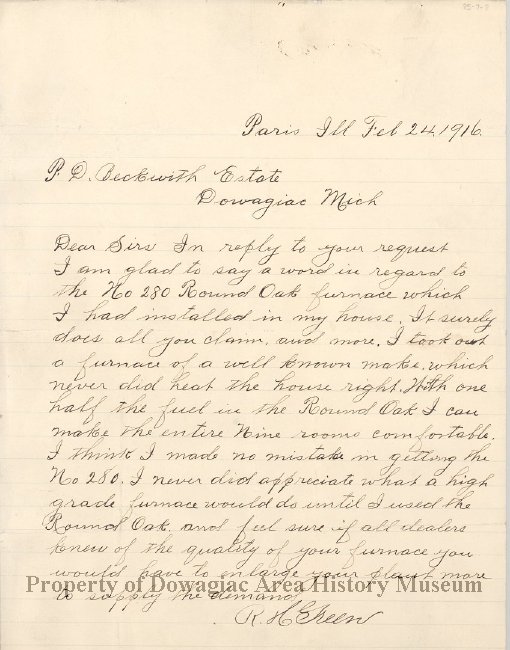 Paris Ill Feb 24, 1916.
P. D. Beckwith Estate
Dowagiac Mich
Dear Sirs In reply to your request
I am glad to say a word in regard to
the No 280 Round Oak furnace which
I had installed in my house. It surely
does all you claim, and more. I took out
a furnace of a well known make, which
never did heat the house right. With one
half the fuel in the Round Oak I can
make the entire Nine rooms comfortable.
I think I made no mistake in getting the
No 280. I never did appreciate what a high
grade furnace would do until I used the
Round Oak, and feel sure if all dealers
knew of the quality of your furnace you
would have to enlarge your plant more
Property of Dowagiac Area History Museum
to supply the demand
R. H. Green